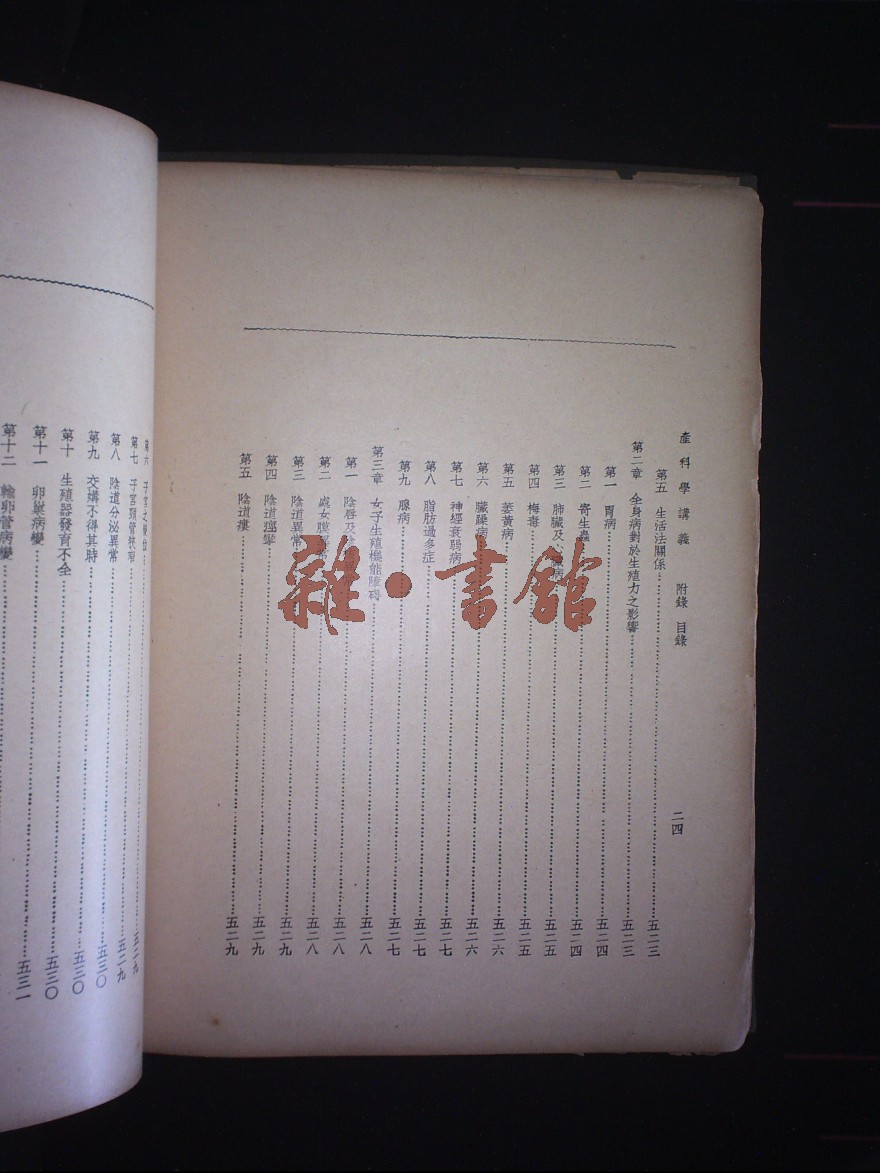 產科學講義 附錄 目錄 二四
第五 生活法關係 五二三
第二章 全身病對於生殖力之影響 五二三
第一 胃病 五二四
第二 寄生蟲 五二四
第三 肺臟及心臟病 五二五
第四 梅毒 五二五
第五 萎黃病 五二六
第六 臟躁病 五二六
第七 神經衰弱病 五二七
第八 脂肪過多症 五二七
第九 腺病 五二七
第三章 女子生殖機能障碍 五二八
第一 陰唇及 五二八
第二 處女膜 五二八
第三 陰道異常 五二九
第四 陰道痙攣 五二九
第五 陰道瘻 五二九
第六 子宮之變位 五二九
第七 子宮頸管狹窄 五二九
第八 陰道分泌異常 五三〇
第九 交媾不得其時 五三〇
第十 生殖器發育不全 五三〇
第十一 卵巢病變 五三一
第十二 輸卵管病變
雜·書館